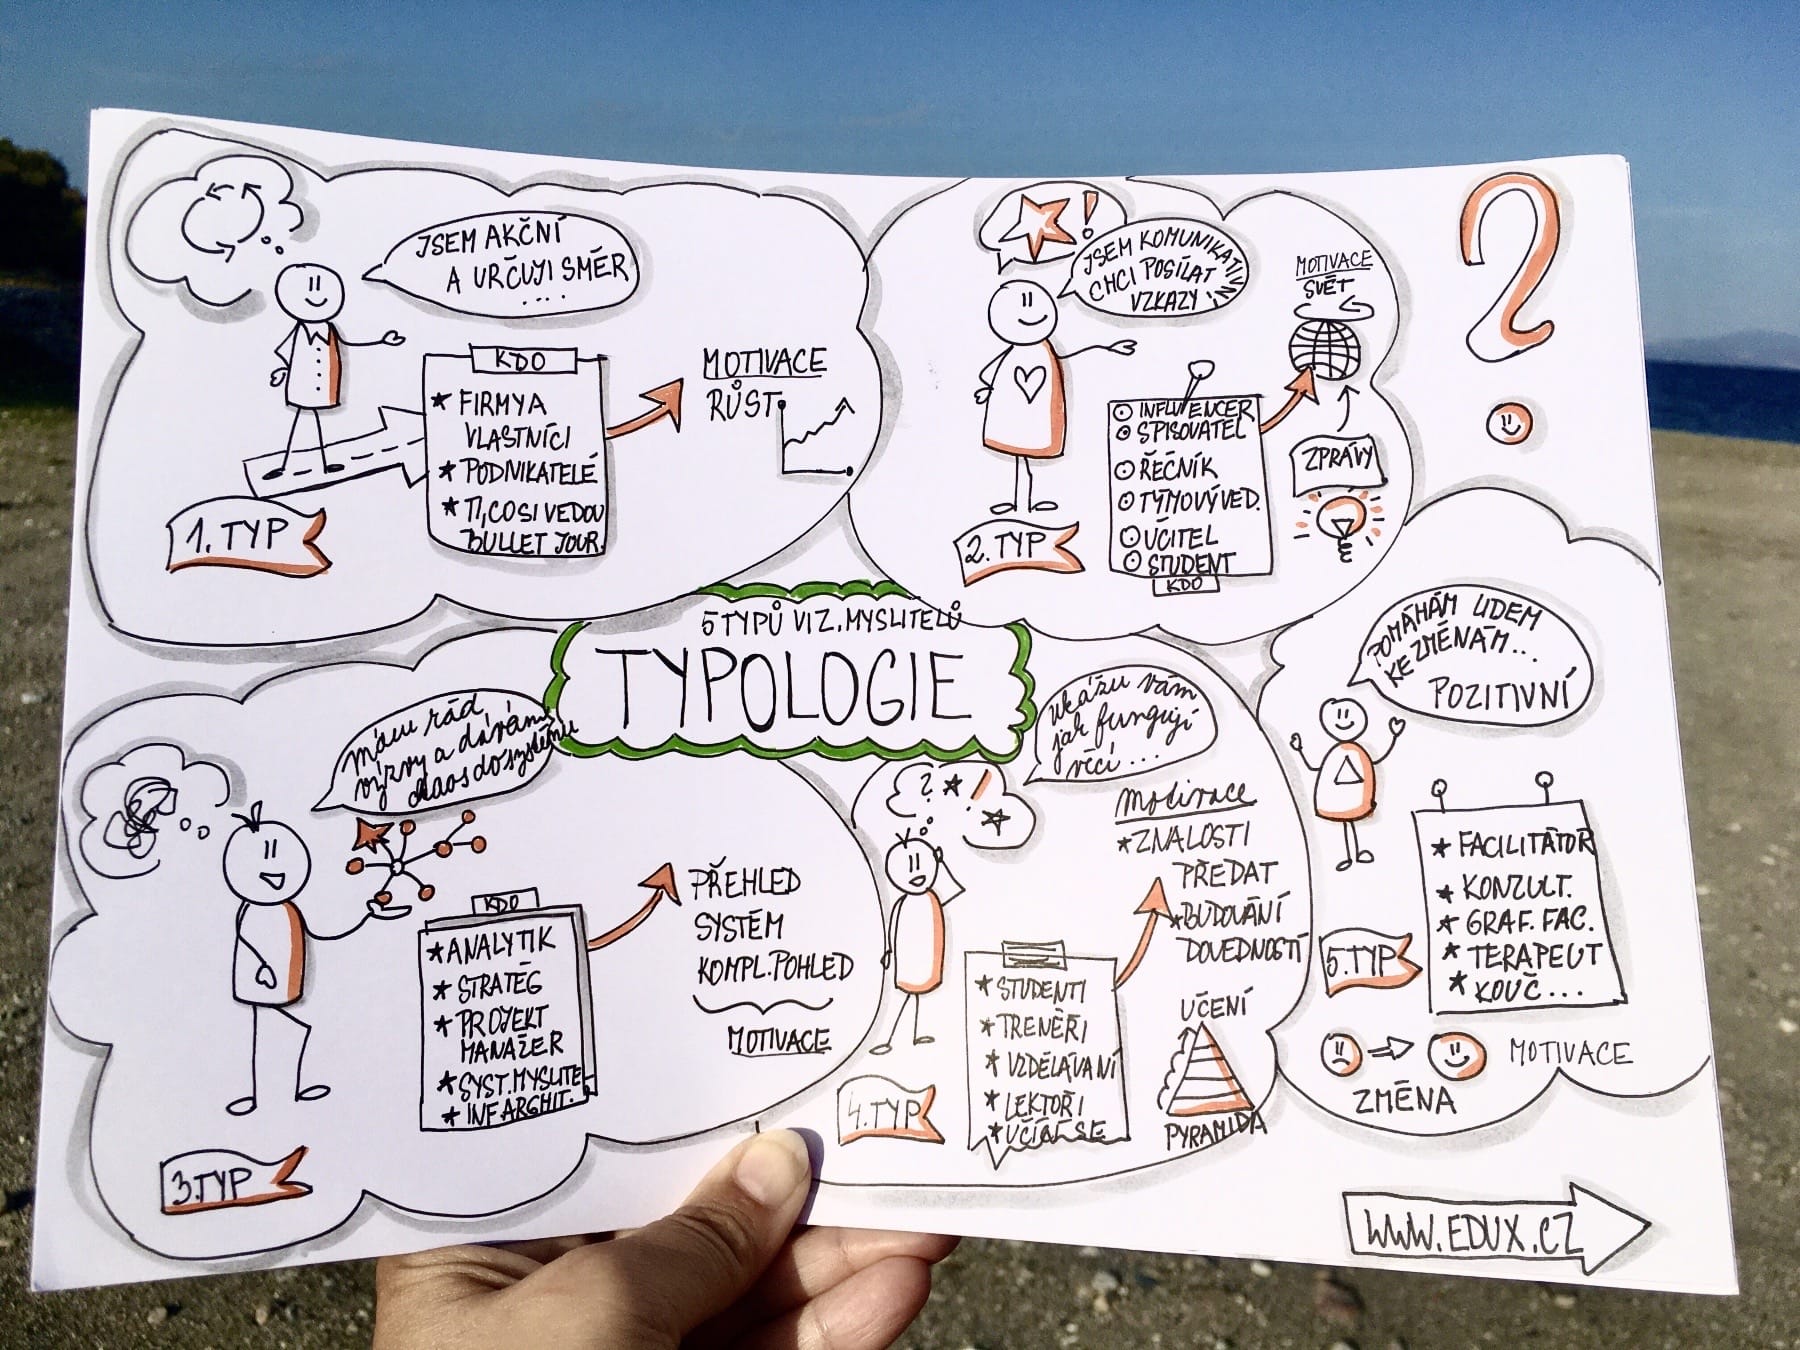 5 TYPŮ VIZ. MYSLITELŮ
TYPOLOGIE
JSEM AKČNÍ
A URČUJI SMĚR
....
KDO
FIRMY A
VLASTNÍCI
PODNIKATELÉ
TI, CO SI VEDOU
BULLET JOUR.
MOTIVACE
RŮST
1. TYP
JSEM KOMUNIKATIVNÍ
CHCI POSÍLAT
VZKAZY
MOTIVACE
SVĚT
INFLUENCER
SPISOVATEL
ŘEČNÍK
TÝMOVÝ VED.
UČITEL
STUDENT
KDO
ZPRÁVY
2. TYP
mám rád
výzvy a dávám
chaos do systému
KDO
ANALYTIK
STRATÉG
PROJEKT
MANAŽER
SYST. MYSLITE
INF. ARCHIT.
PŘEHLED
SYSTÉM
KOMPL. POHLED
MOTIVACE
3. TYP
ukážu vám
jak fungují
věci ...
motivace
ZNALOSTI
PŘEDAT
BUDOVÁNÍ
DOVEDNOSTÍ
STUDENTI
TRENÉŘI
VZDĚLÁVANÍ
LEKTOŘI
UČÍCÍ SE
UČENÍ
PYRAMIDA
4. TYP
POMÁHÁM LIDEM
KE ZMĚNÁM...
POZITIVNÍ
FACILITÁTOR
KONZULT.
GRAF. FAC.
TERAPEUT
KOUČ...
5. TYP
MOTIVACE
ZMĚNA
WWW.EDUX.CZ